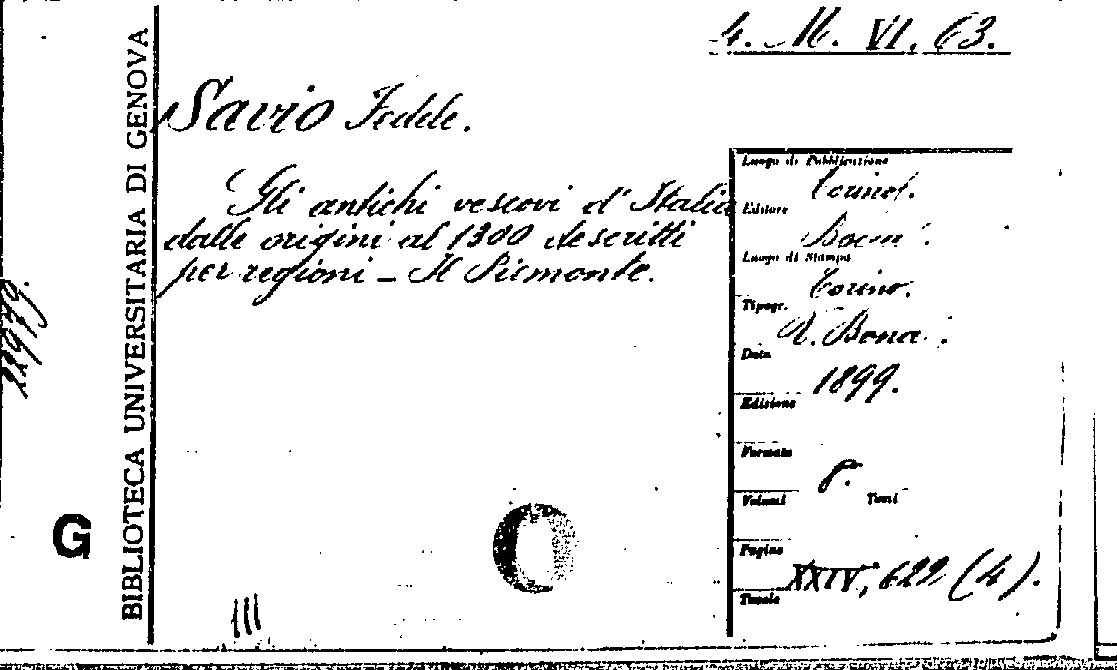 4. M. VI. 63.
Savio Fedele.
Gli antichi vescovi d'Italia
dalle origini al 1300 descritti
per regioni - Il Piemonte.
Luogo di Pubblicazione
Torino.
Editore
Bocca.
Luogo di Stampa
Torino.
Tipogr.
V. Bona.
Data
1899.
Edizione
Formato
8.
Volumi Tomi
Pagine
XXIV, 622 (4).
Tavole
BIBLIOTECA UNIVERSITARIA DI GENOVA
G